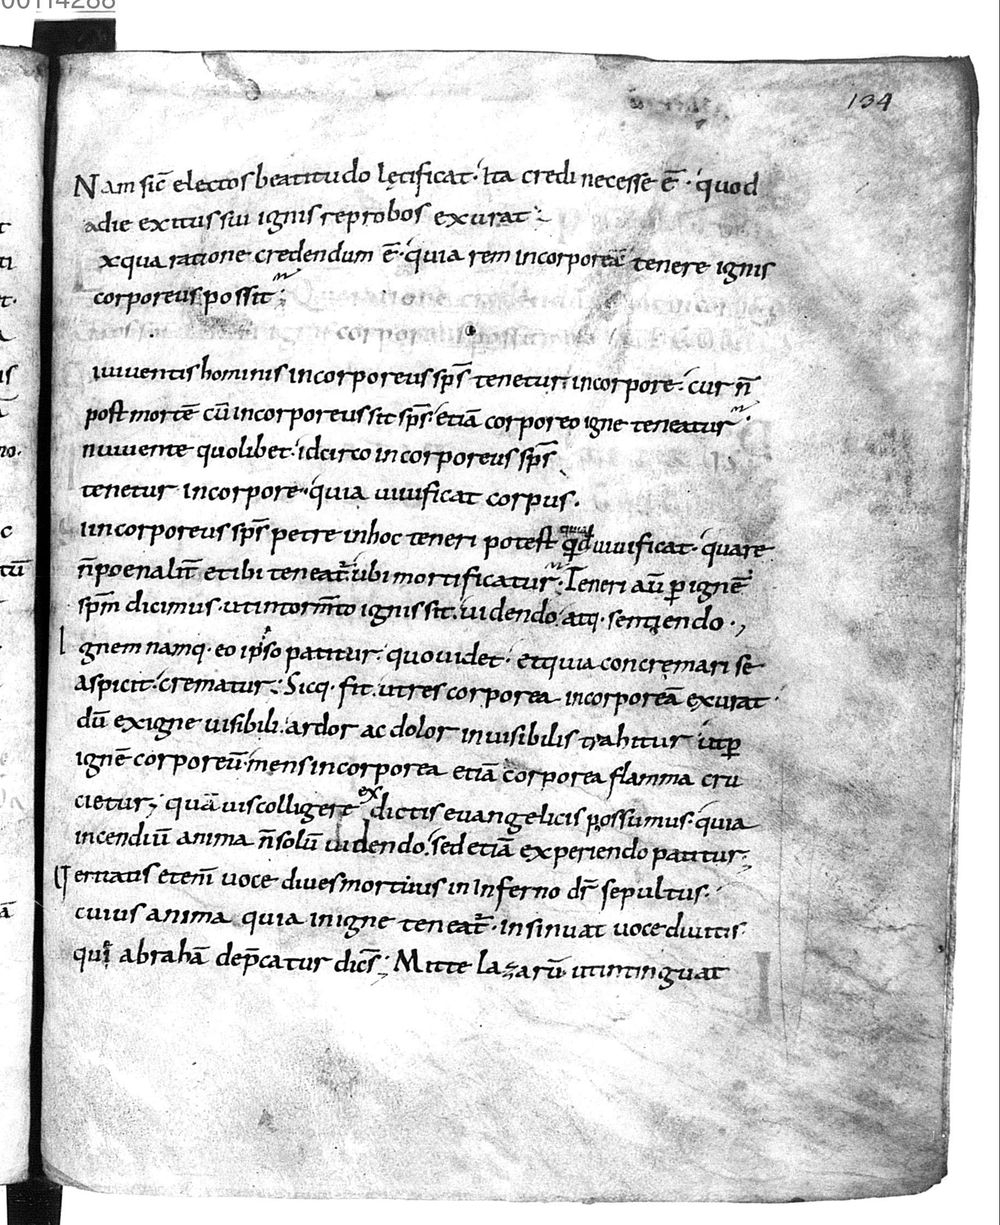 00114288
134
Nam sic̄ electos beatitudo lętificat· Ita credi necesse ē· quod
a die exitus sui ignis reprobos exurat
x qua ratione credendum ē· quia rem incorporeā tenere ignis
corporeus possit
i uiuentis hominis incorporeus sp̄s tenetur in corpore· cur n̄
post mortē cū incorporeus sit sp̄s· etiā corporeo igne teneatur
n uiuente quolibet· idcirco incorporeus sp̄s
tenetur in corpore· quia uiuificat corpus·
i incorporeus sp̄s petre in hoc teneri potest qđ uiuificat· quare
n̄ poenalit̄ et ibi teneat̄ ubi mortificatur· Teneri aū p ignē
sp̄m dicimus· ut in torm̄to ignis sit· uidendo atq· sentiendo·,
Ignem namq· eo ipso patitur· quo uidet· et quia concremari se
aspicit· crematur· Sicq· fit· ut res corporea incorporeā exurat·
dū ex igne uisibili· ardor ac dolor inuisibilis trahitur ut p
ignē corporeū· mens incorporea etiā corporea flamma cru
cietur; quā uis colligere ex dictis euangelicis possumus· quia
incendiū anima n̄ solū uidendo· sed etiā experiendo patitur;
Ueritatis eteni voce diues mortuus in Inferno dr̄ sepultus·
cuius anima quia in igne teneat̄· insinuat uoce diuitis·
qui abrahā dep̄catur dic̄s; Mitte lazarū ut intinguat